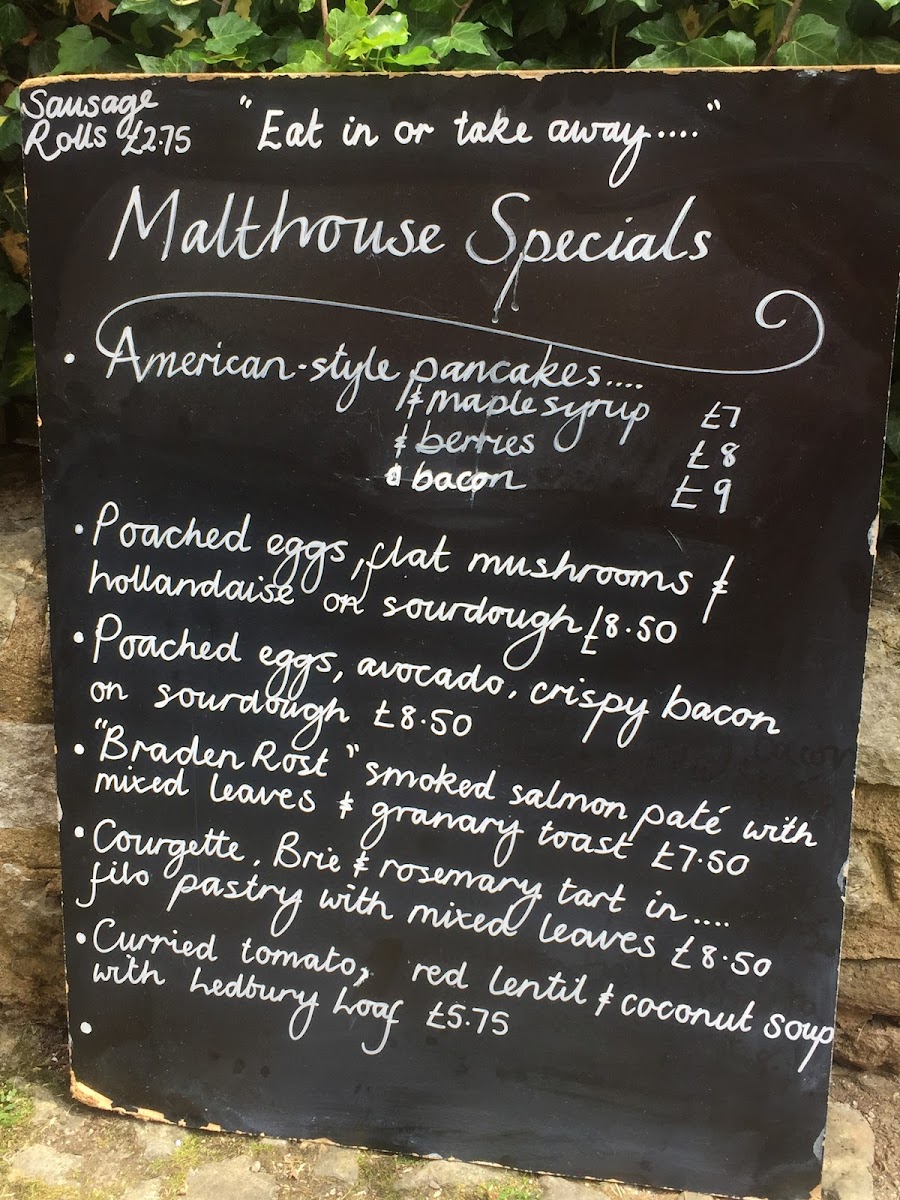 Sausage
Rolls £2.75
"Eat in or take away...."
Malthouse Specials
• American-style pancakes....
& maple syrup £7
& berries £8
& bacon £9
• Poached eggs, flat mushrooms &
hollandaise on sourdough £8.50
• Poached eggs, avocado, crispy bacon
on sourdough £8.50
• "Braden Rost" smoked salmon paté with
mixed leaves & granary toast £7.50
• Courgette, Brie & rosemary tart in....
filo pastry with mixed leaves £8.50
• Curried tomato, red lentil & coconut soup
with Ledbury Loaf £5.75
•